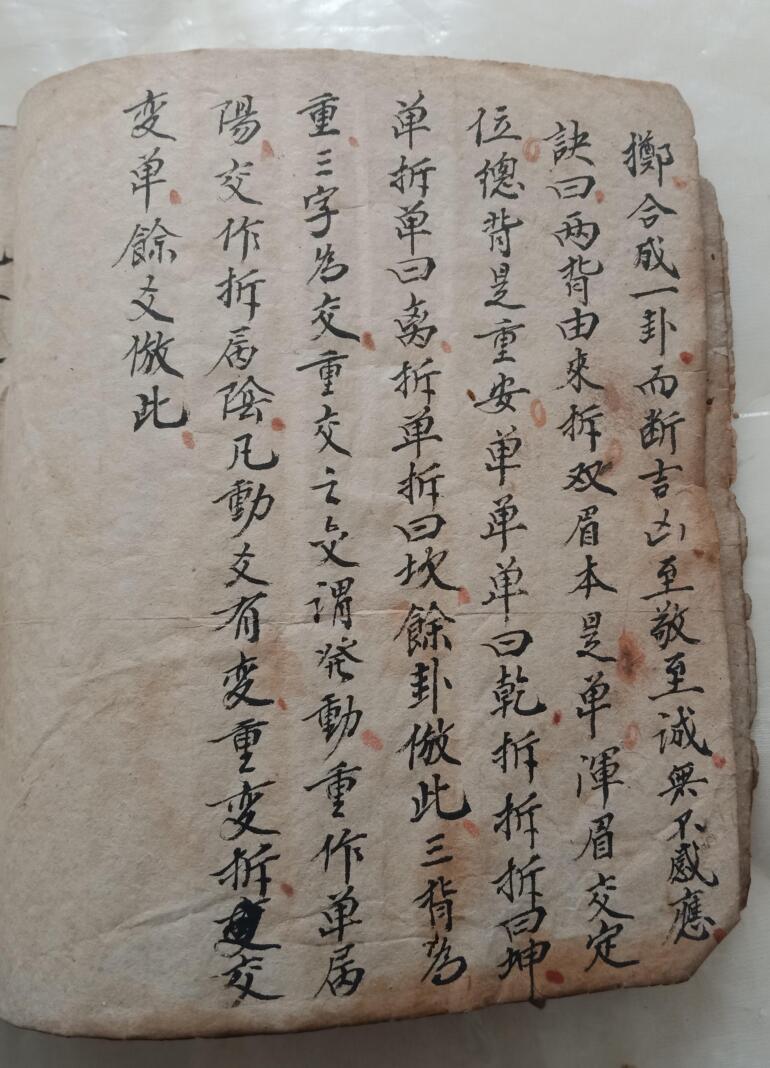 擲合成一卦而断吉凶至敬至誠無不感應
訣曰两背由來拆双眉本是单渾眉交定
位總背是重安单单单曰乾拆拆拆曰坤
单拆单曰离拆单拆曰坎餘卦倣此三背為
重三字為交重交之交謂発動重作单属
陽交作拆属陰凡動爻有变重变拆交
变单餘爻倣此